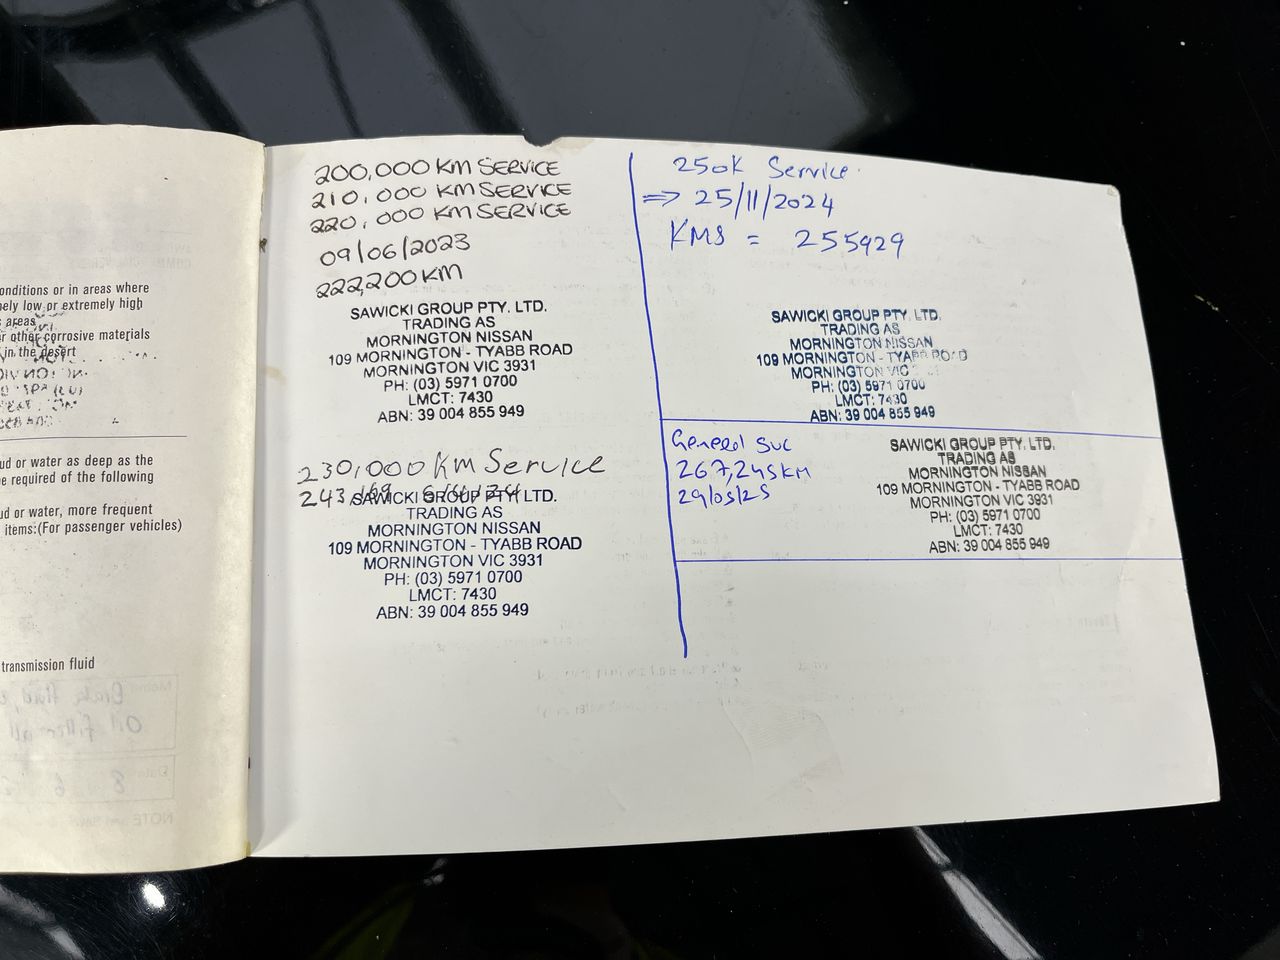 onditions or in areas where
ely low or extremely high
areas
r other corrosive materials
in the desert
ud or water as deep as the
e required of the following
ud or water, more frequent
items:(For passenger vehicles)
transmission fluid
200,000 KM SERVICE
210,000 KM SERVICE
220,000 KM SERVICE
09/06/2023
222,200 KM
SAWICKI GROUP PTY. LTD.
TRADING AS
MORNINGTON NISSAN
109 MORNINGTON - TYABB ROAD
MORNINGTON VIC 3931
PH: (03) 5971 0700
LMCT: 7430
ABN: 39 004 855 949
230,000 Km Service
243,169
SAWICKI GROUP PTY. LTD.
TRADING AS
MORNINGTON NISSAN
109 MORNINGTON - TYABB ROAD
MORNINGTON VIC 3931
PH: (03) 5971 0700
LMCT: 7430
ABN: 39 004 855 949
250K Service
⇒ 25/11/2024
KMS = 255929
SAWICKI GROUP PTY. LTD.
TRADING AS
MORNINGTON NISSAN
109 MORNINGTON - TYABB ROAD
MORNINGTON VIC
PH: (03) 5971 0700
LMCT: 7430
ABN: 39 004 855 949
General Svc
267,245 KM
29/05/25
SAWICKI GROUP PTY. LTD.
TRADING AS
MORNINGTON NISSAN
109 MORNINGTON - TYABB ROAD
MORNINGTON VIC 3931
PH: (03) 5971 0700
LMCT: 7430
ABN: 39 004 855 949